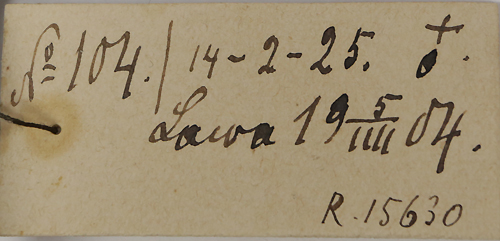 № 104. / 14-2-25. ♂.
Lawa 19 5/IIII 04.
R.15630